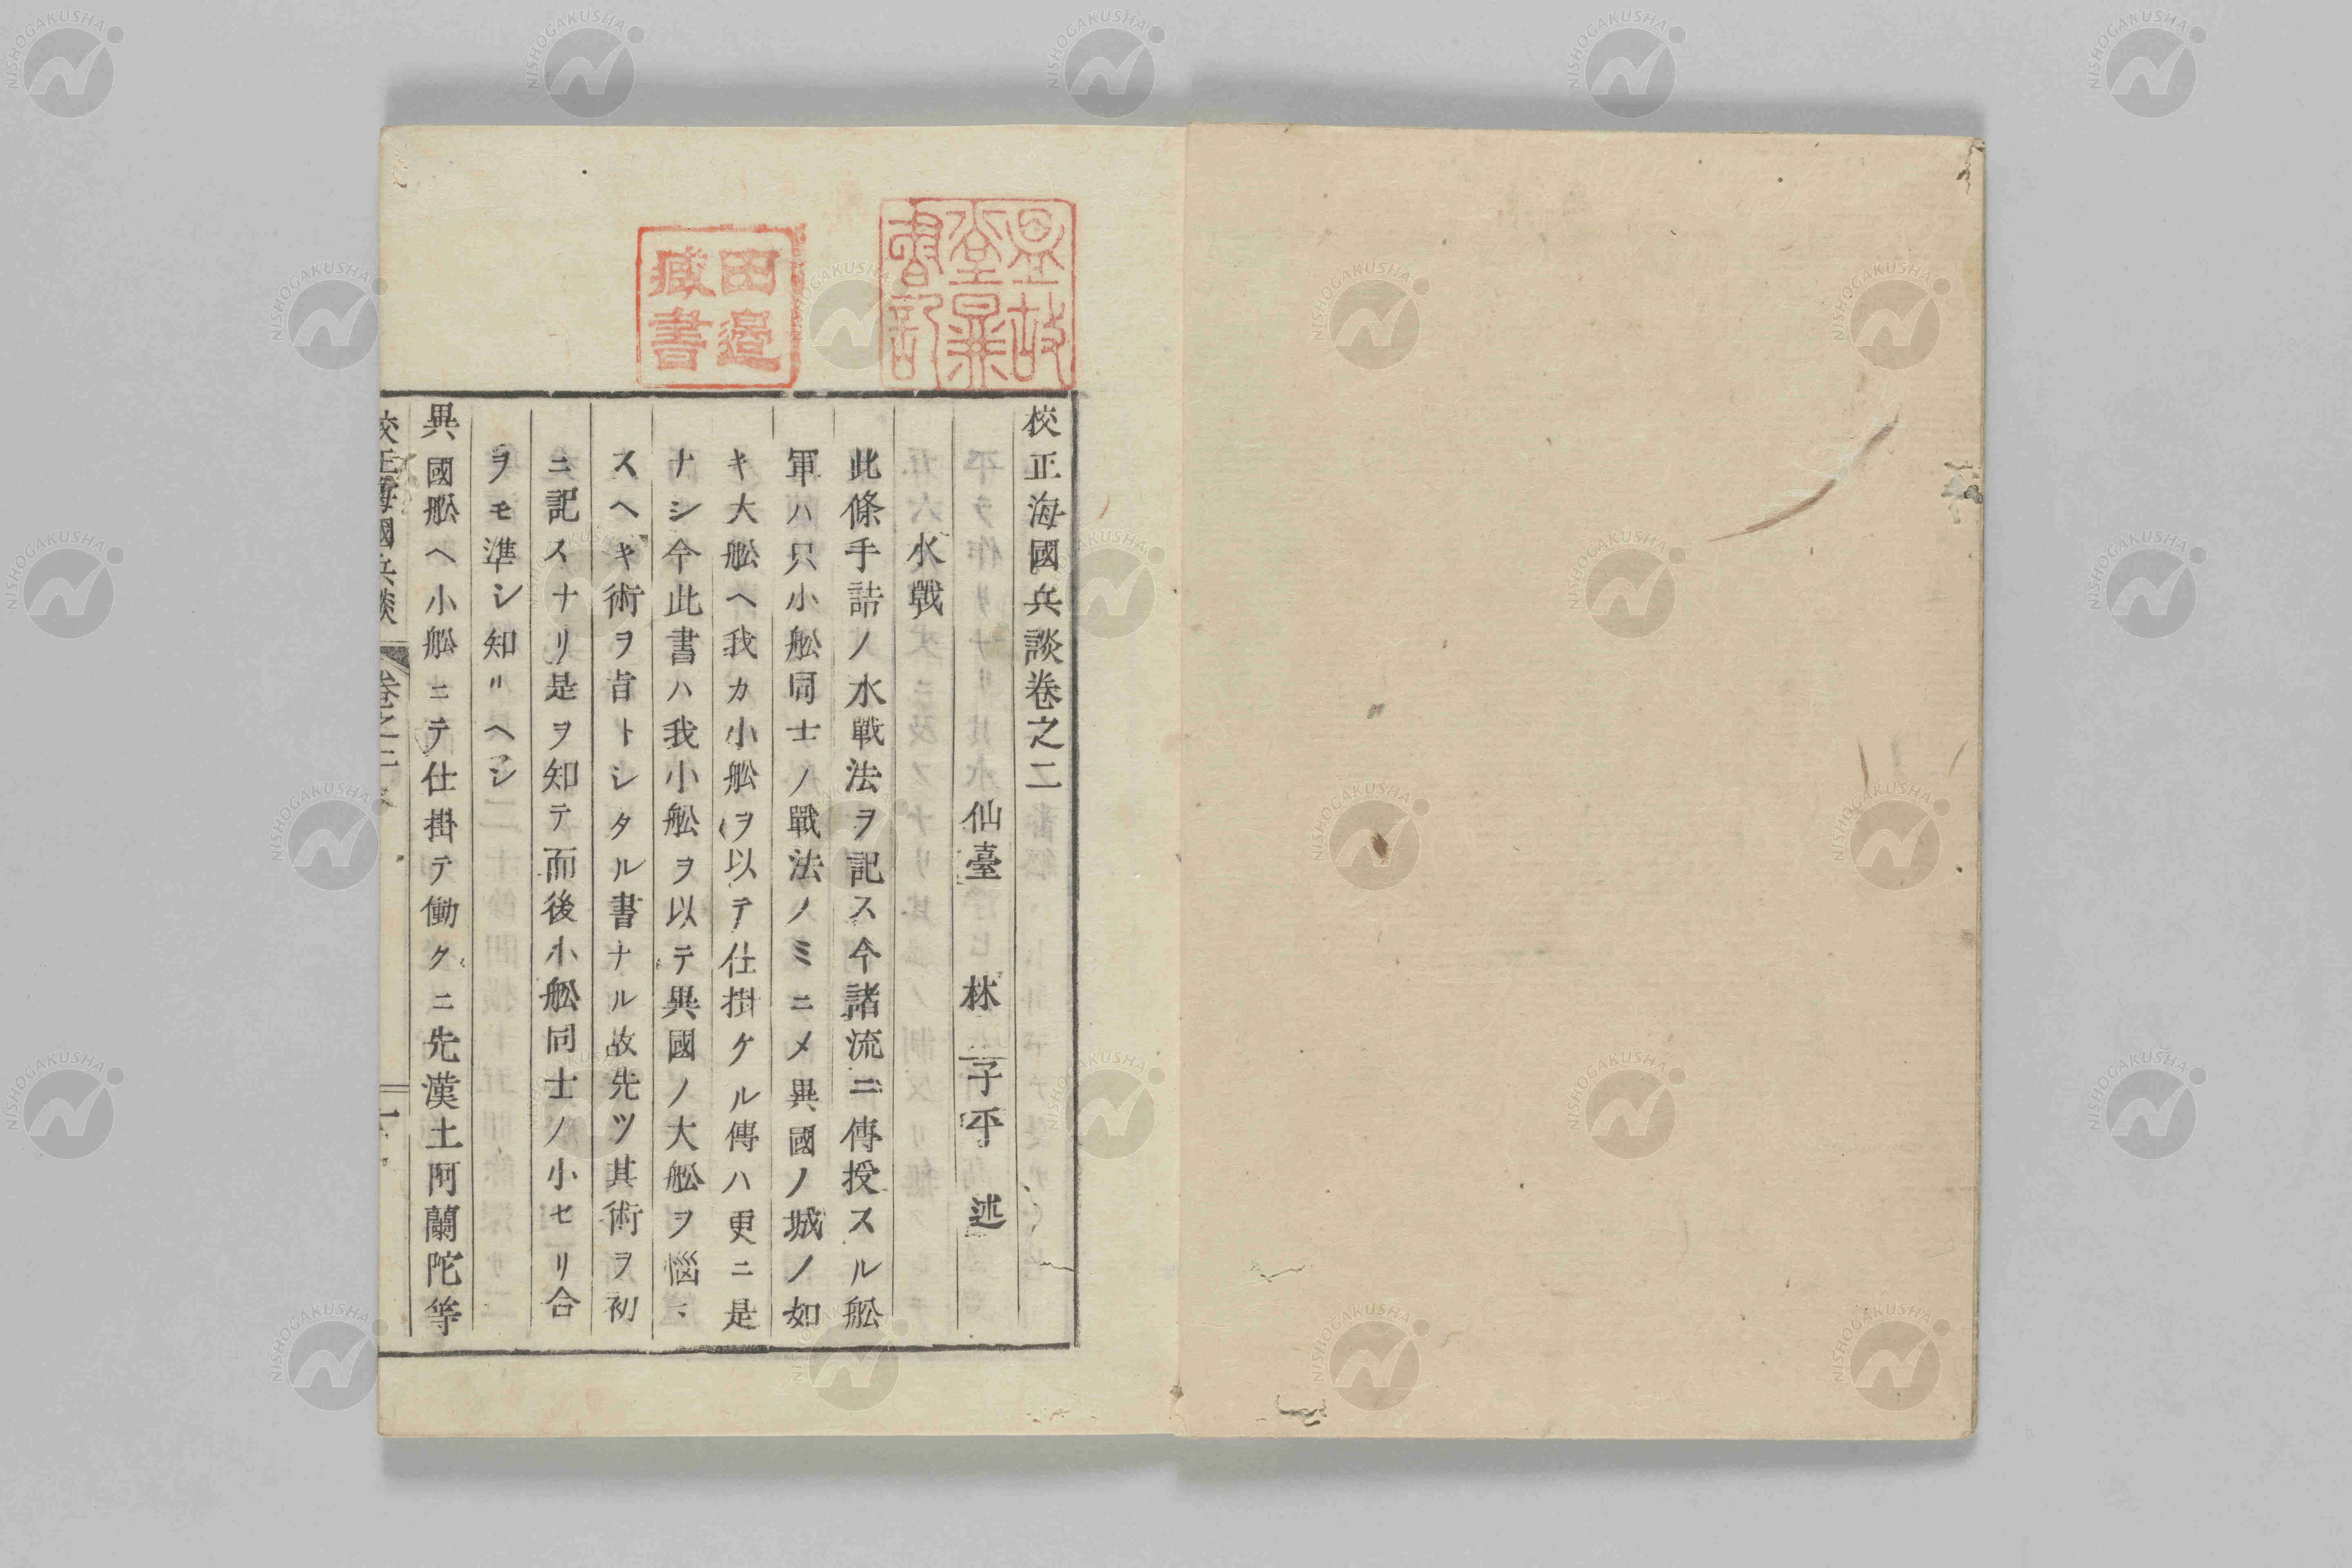 校正海國兵談卷之二
仙臺 林 子平 述
水戰
此條手詰ノ水戰法ヲ記ス今諸流ニ傳授スル舩
軍ハ只小舩同士ノ戰法ノミニメ異國ノ城ノ如
キ大舩ヘ我カ小舩ヲ以テ仕掛ケル傳ハ更ニ是
ナシ今此書ハ我小舩ヲ以テ異國ノ大舩ヲ惱ﾐ
スヘキ術ヲ旨トシタル書ナル故先ツ其術ヲ初
ニ記スナリ是ヲ知テ而後小舩同士ノ小セリ合
ヲモ準シ知リヘシ
異國舩ヘ小舩ニテ仕掛テ働クニ先漢土阿蘭陀等
校正海國兵談 卷之二 一
田邉
藏書
NISHOGAKUSHA